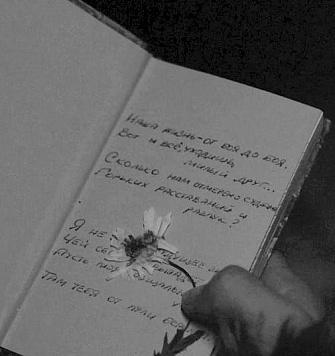 Наша жизнь - от боя до боя.
Вот и всё, уходишь,
милый друг...
Сколько нам отмерено судьбою
Горьких расставаний и
разлук?
Я не
Чей се
Пусть
Там тебя от пули